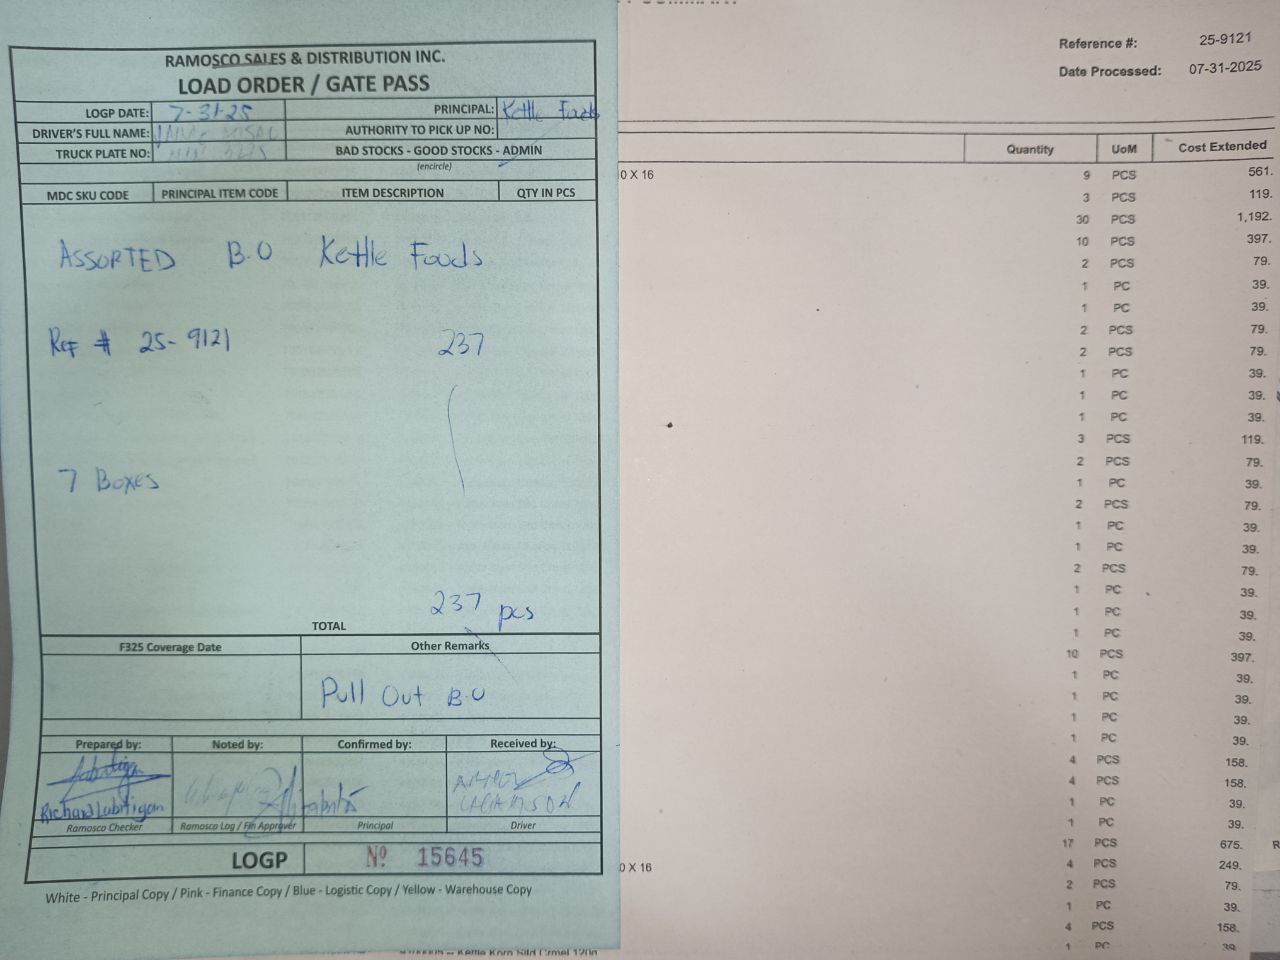 RAMOSCO SALES & DISTRIBUTION INC.
LOAD ORDER / GATE PASS
LOGP DATE: 7-31-25 PRINCIPAL: Kettle Foods
DRIVER'S FULL NAME: AUTHORITY TO PICK UP NO:
TRUCK PLATE NO: BAD STOCKS - GOOD STOCKS - ADMIN
(encircle)
MDC SKU CODE PRINCIPAL ITEM CODE ITEM DESCRIPTION QTY IN PCS
ASSORTED B.O Kettle Foods
Ref # 25-9121 237
7 Boxes
237 pcs
TOTAL
F325 Coverage Date Other Remarks
Pull Out B.O
Prepared by: Noted by: Confirmed by: Received by:
Richard Labitigan
Ramosco Checker Ramosco Log / Fin Approver Principal Driver
LOGP Nº 15645
White - Principal Copy / Pink - Finance Copy / Blue - Logistic Copy / Yellow - Warehouse Copy
Reference #: 25-9121
Date Processed: 07-31-2025
Quantity UoM Cost Extended
0 X 16 9 PCS 561.
3 PCS 119.
30 PCS 1,192.
10 PCS 397.
2 PCS 79.
1 PC 39.
1 PC 39.
2 PCS 79.
2 PCS 79.
1 PC 39.
1 PC 39.
1 PC 39.
3 PCS 119.
2 PCS 79.
1 PC 39.
2 PCS 79.
1 PC 39.
1 PC 39.
2 PCS 79.
1 PC 39.
1 PC 39.
1 PC 39.
10 PCS 397.
1 PC 39.
1 PC 39.
1 PC 39.
1 PC 39.
4 PCS 158.
4 PCS 158.
1 PC 39.
1 PC 39.
17 PCS 675. R
0 X 16 4 PCS 249.
2 PCS 79.
1 PC 39.
4 PCS 158.
1 PC 39
Kettle Korn Sltd Crmel 120g